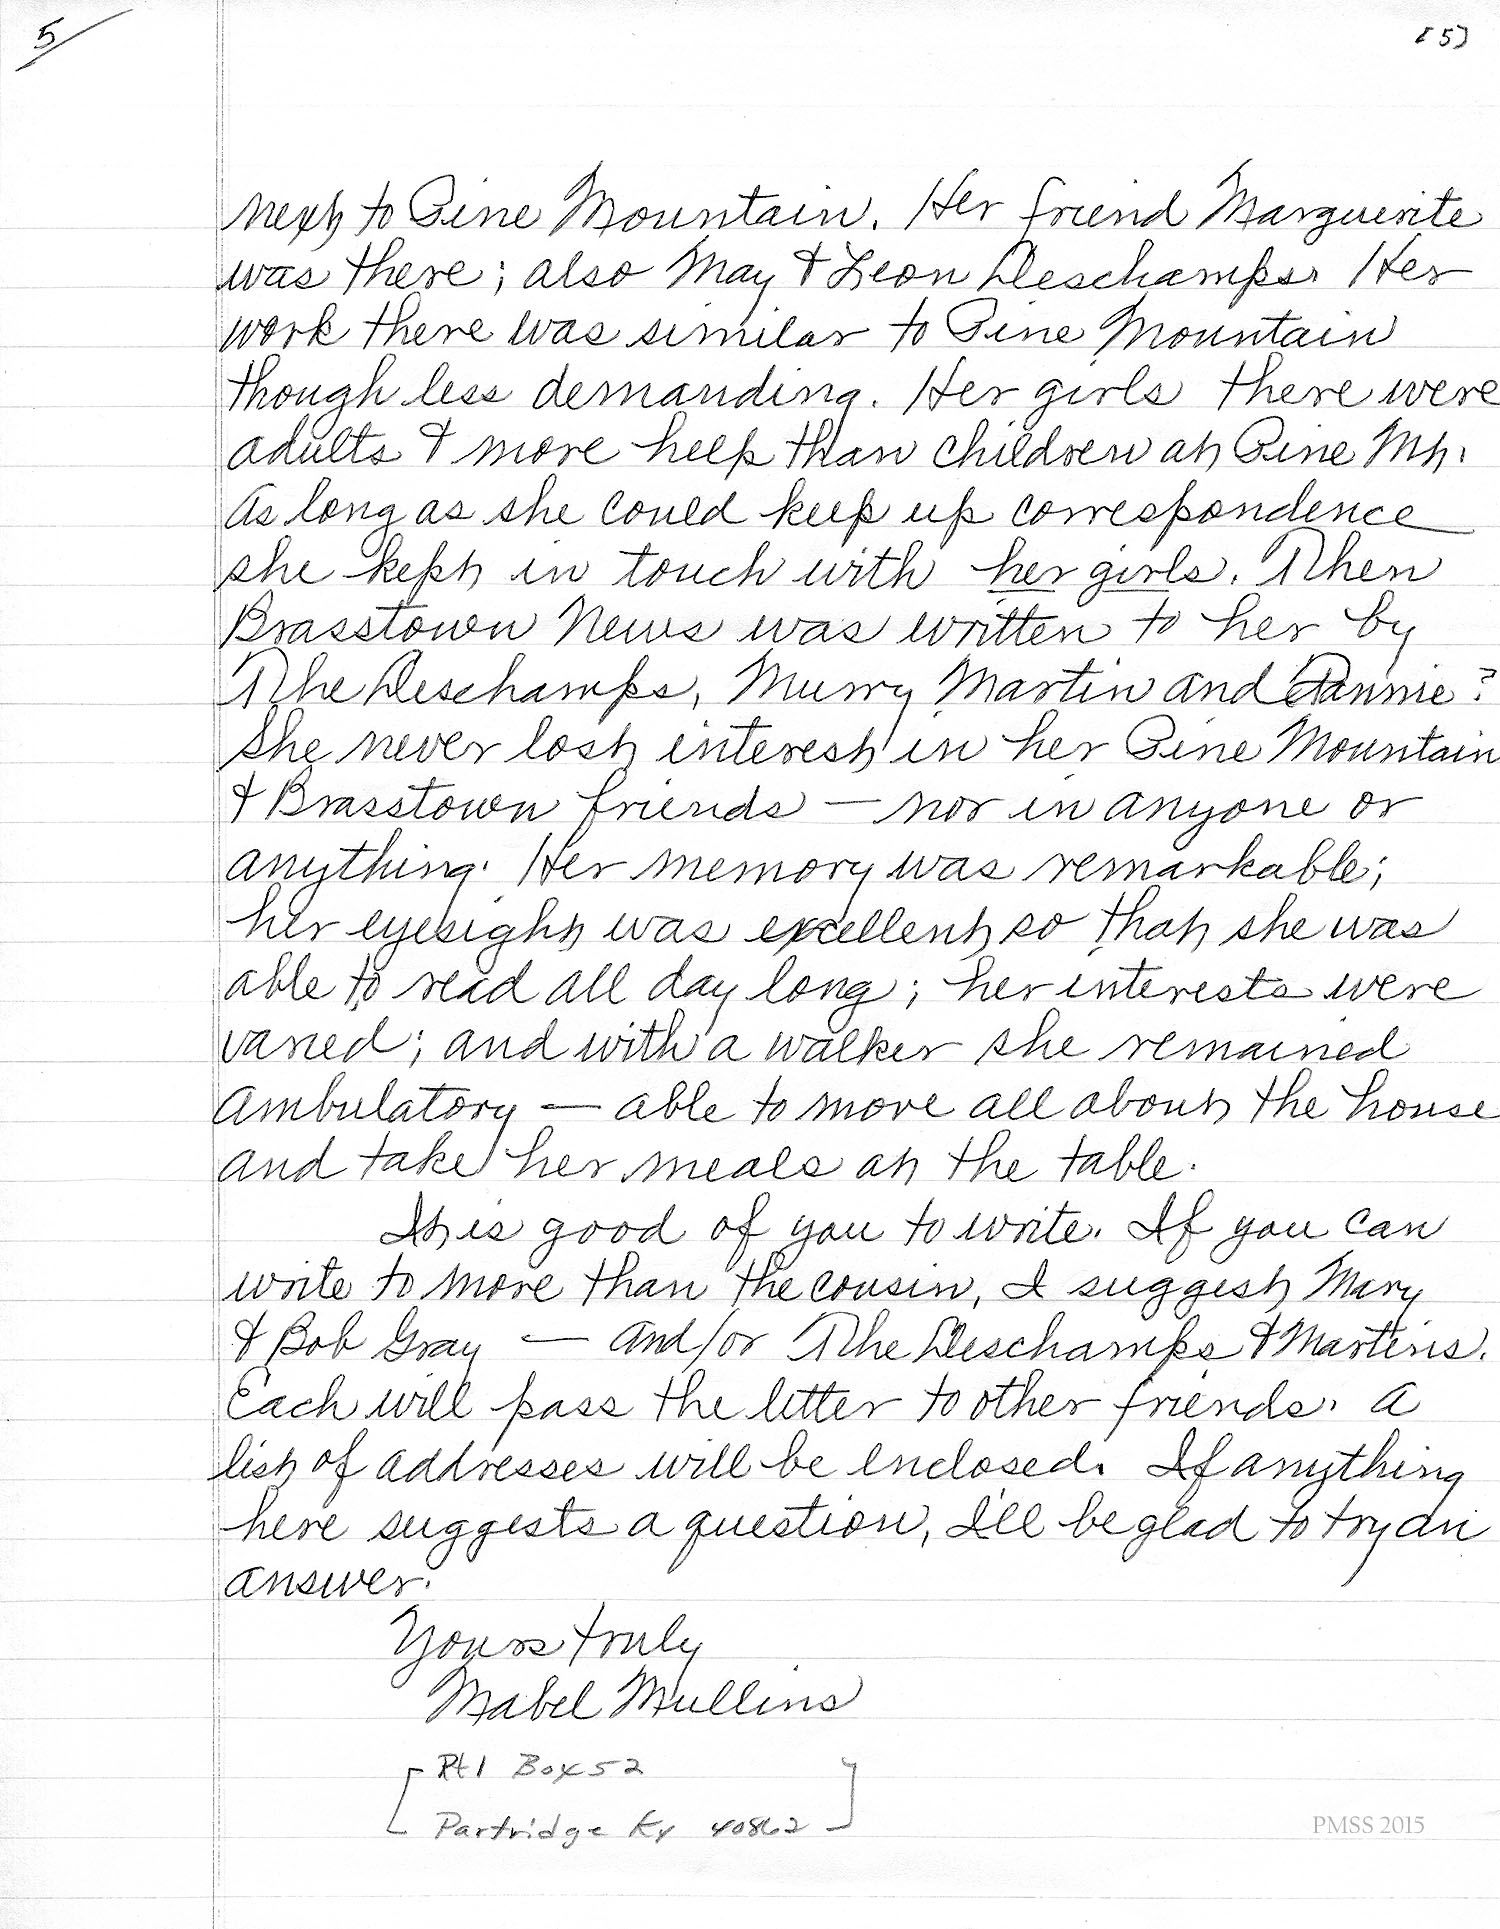 5/
[5]
next to Pine Mountain. Her friend Marguerite
was there; also May & Leon Deschamps. Her
work there was similar to Pine Mountain
though less demanding. Her girls there were
adults & more help than children at Pine Mt.
As long as she could keep up correspondence
she kept in touch with her girls. Then
Brasstown News was written to her by
The Deschamps, Murry Martin and Fannie?
She never lost interest in her Pine Mountain
& Brasstown friends — nor in anyone or
anything. Her memory was remarkable;
her eyesight was excellent so that she was
able to read all day long; her interests were
varied; and with a walker she remained
ambulatory — able to move all about the house
and take her meals at the table.
It is good of you to write. If you can
write to more than the cousin, I suggest Mary
& Bob Gray — and/or The Deschamps & Martins.
Each will pass the letter to other friends. A
list of addresses will be enclosed. If anything
here suggests a question, I'll be glad to try an
answer.
Yours truly
Mabel Mullins
[Rt 1 Box 52
Partridge Ky 40862]
PMSS 2015